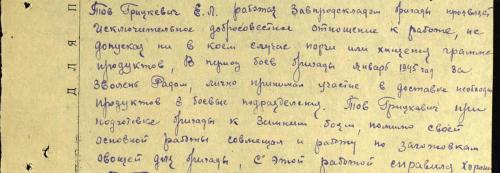 Тов Грицкевич Е.Л. работая Завпродскладом бригады проявляет
исключительное добросовестное отношение к работе, не
допускал ни в коем случае порчи или хищения грамма
продуктов, В период боев бригады январь 1945 год за
Зволень Радом, лично принимал участие в доставке необход
продуктов в боевые подразделения. Тов Грицкевич при
подготовке бригады к зимним боям, помимо своей
основной работы совмещал и работу по заготовкам
овощей для бригады, С этой работой справился хорошо
Д Л Я П